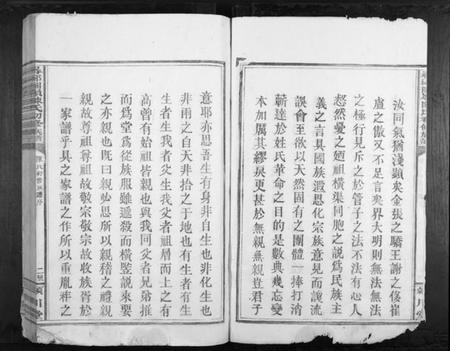 汝同氣猶淺顯矣金張之驕王謝之侈崔
盧之傲又不足言矣界大明則無法無法
之極行見斥之於管子之法不法有心人
怒然憂之廼祖橫渠同胞之說為民族主
義之言具國族渡恩化宗族意見而訛流
誤會至欲以天然固有之團體一捧打消
蘄達於姓氏革命之目的是數典幾忘變
本加厲其繆戾更甚於無親無親豈君子
意耶亦思吾生有身非自生也非化生也
非雨之自天非拾之于地也有生者有生
生者生我者父生我父者祖層而上之有
高曾有始祖皆親也與我同父者兄弟推
而為堂為從族服雖遞殺而橫豎説來要
之亦親也既曰親必思所以親睦之禮親
親故尊祖尊祖故敬宗敬宗故收族胥於
一家譜乎具之家譜之作所以重胤祥之